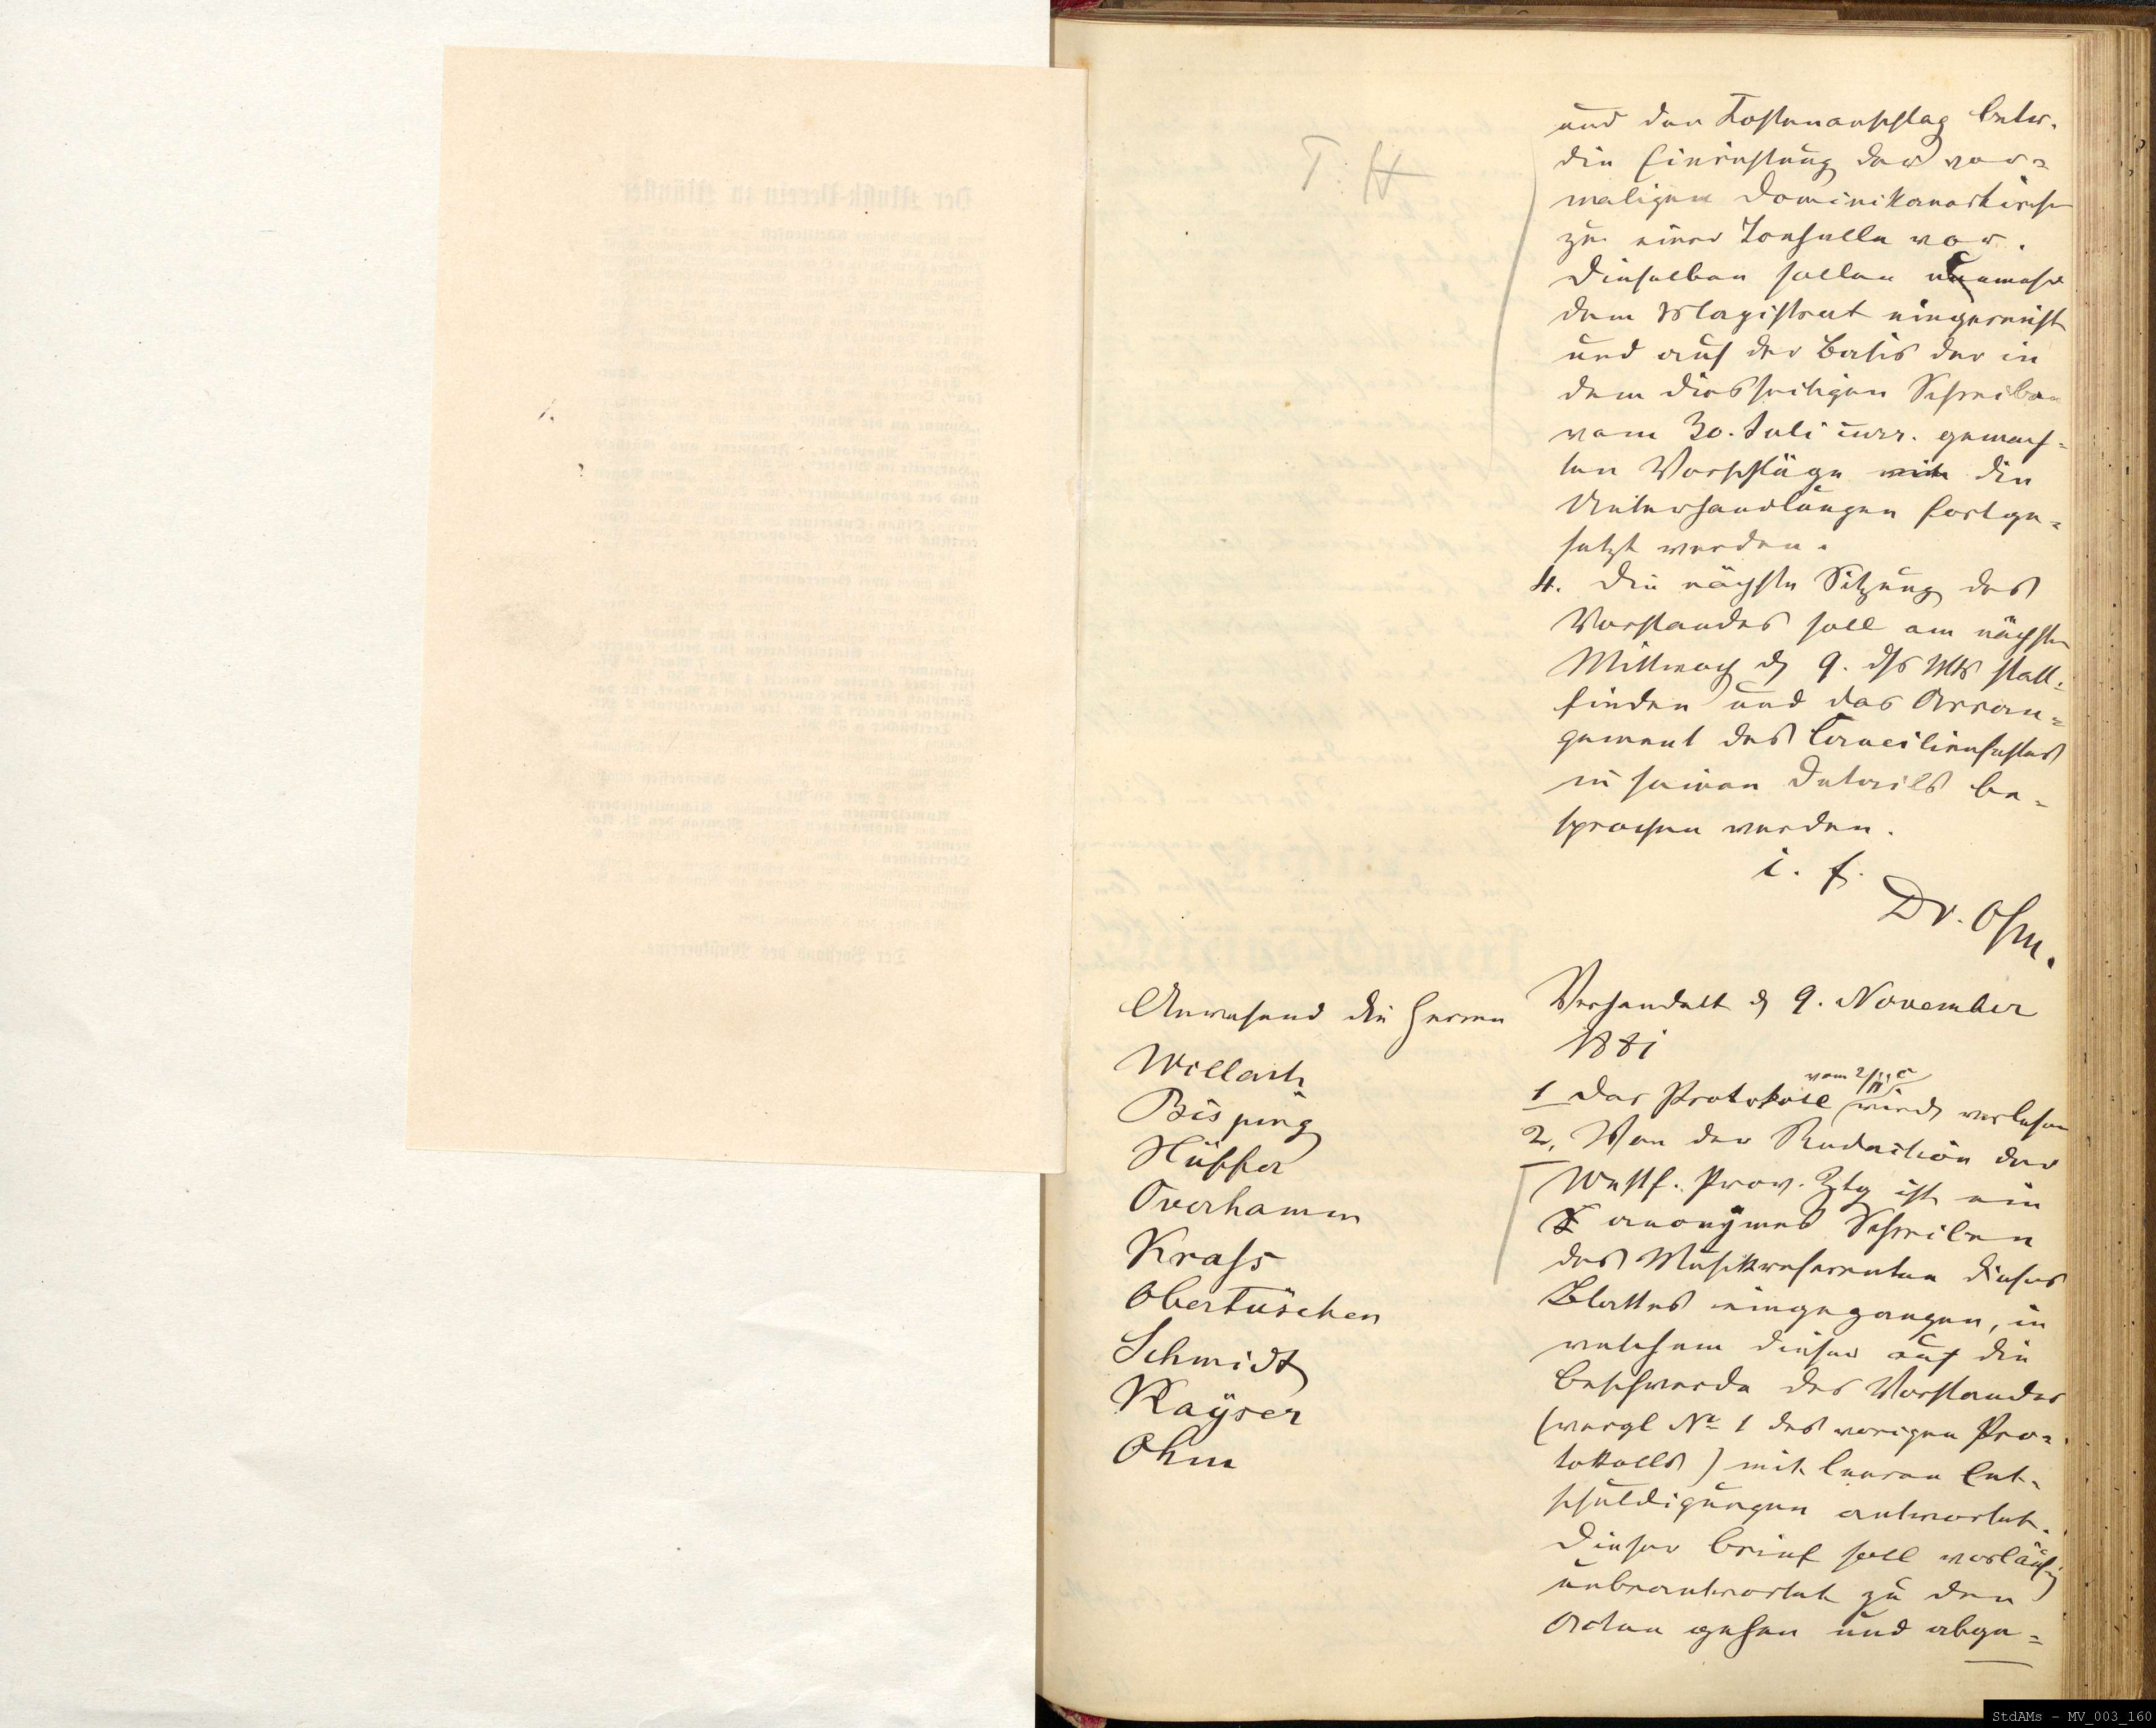 T. H
und den Kostenanschlag betr.
die Einrichtung der vor=
maligen Dominikanerkirche
zu einer Tonhalle vor.
Dieselben sollen nunmehr
dem Magistrat eingereicht
und auf der Basis der in
dem diesseitigen Schreiben
vom 30. Juli curr. gemach=
ten Vorschläge die
Unterhandlungen fortge=
setzt werden.
4. Die nächste Sitzung des
Vorstandes soll am nächsten
Mittwoch d 9. dss Mts statt=
finden und das Arran=
gement des Caecilienfestes
in seinen Details be=
sprochen werden.
i. f.
Dr. Ohm.
Anwesend die Herren
Willach
Bisping
Hüffer
Overhamm
Krass
Obertüschen
Schmidt
Kayser
Ohm
Verhandelt d 9. November
1881
1 Das Protokoll vom 2/11 c wird verlesen
2. Von der Redaction der
Westf. Prov. Ztg ist ein
anonymes Schreiben
des Musikreferenten dieses
Blattes eingegangen, in
welchem dieser auf die
Beschwerde des Vorstandes
(vergl No 1 des vorigen Pro=
tokolls) mit leeren Ent=
schuldigungen antwortet.
Dieser Brief soll vorläufig
unbeantwortet zu den
Acten gehen und abge=
StdAMs - MV_003_160